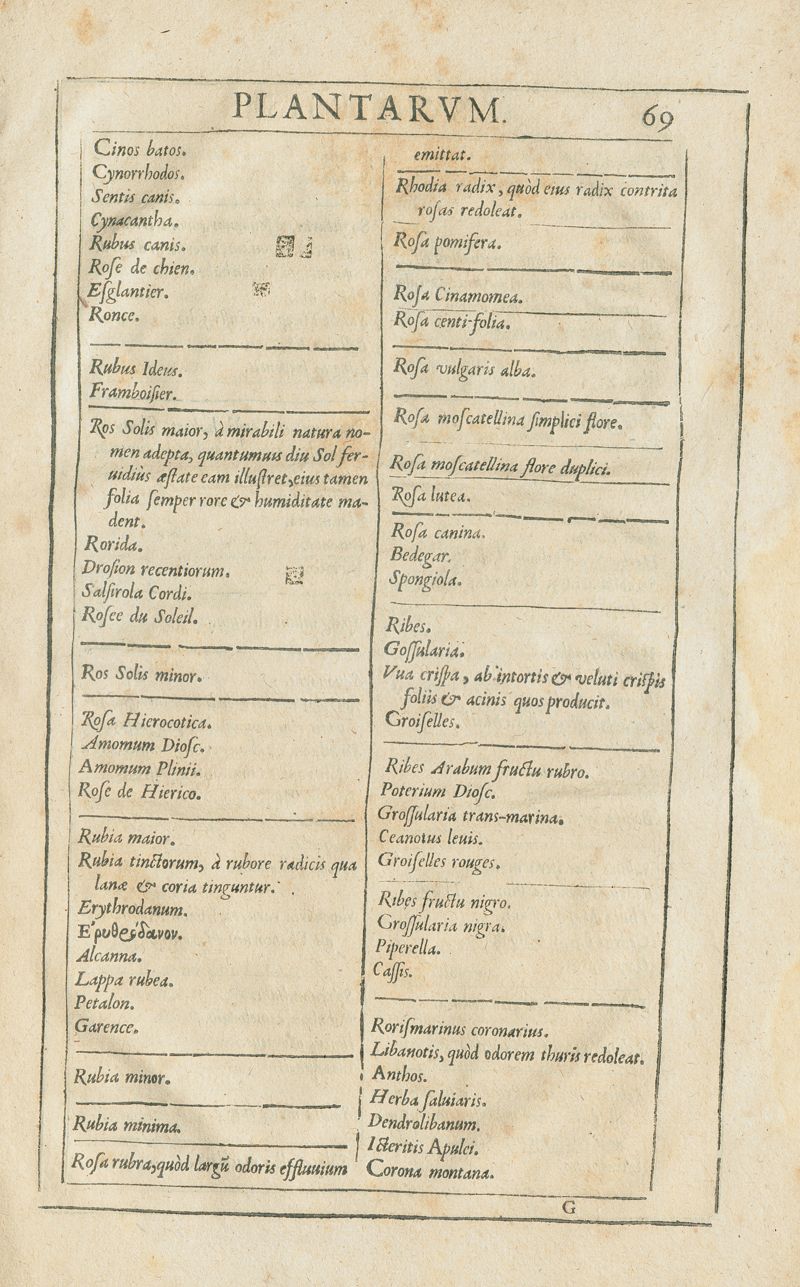 PLANTARVM.
69
Cinos batos.
Cynorrhodos.
Sentis canis.
Cynacantha.
Rubus canis.
Rose de chien.
Esglantier.
Ronce.
Rubus Ideus.
Framboisier.
Ros Solis maior, à mirabili natura no-
men adepta, quantumuis diu Sol fer-
uidiùs æstate eam illustret, eius tamen
folia semper rore & humiditate ma-
dent.
Rorida.
Drosion recentiorum.
Salsirola Cordi.
Rosee du Soleil.
Ros Solis minor.
Rosa Hierocotica.
Amomum Diosc.
Amomum Plinii.
Rose de Hierico.
Rubia maior.
Rubia tinctorum, à rubore radicis qua
lanæ & coria tinguntur.
Erythrodanum.
Ερυθρόδανον.
Alcanna.
Lappa rubea.
Petalon.
Garence.
Rubia minor.
Rubia minima.
Rosa rubra, quòd largũ odoris effluuium
emittat.
Rhodia radix, quòd eius radix contrita
rosas redoleat.
Rosa pomifera.
Rosa Cinamomea.
Rosa centi-folia.
Rosa vulgaris alba.
Rosa moscatellina simplici flore.
Rosa moscatellina flore duplici.
Rosa lutea.
Rosa canina.
Bedegar.
Spongiola.
Ribes.
Gossularia.
Vua crispa, ab intortis & veluti crispis
foliis & acinis quos producit.
Groiselles.
Ribes Arabum fructu rubro.
Poterium Diosc.
Grossularia trans-marina.
Ceanotus leuis.
Groiselles rouges.
Ribes fructu nigro.
Grossularia nigra.
Piperella.
Cassis.
Rorismarinus coronarius.
Libanotis, quòd odorem thuris redoleat.
Anthos.
Herba saluiaris.
Dendrolibanum.
Icteritis Apulei.
Corona montana.
G